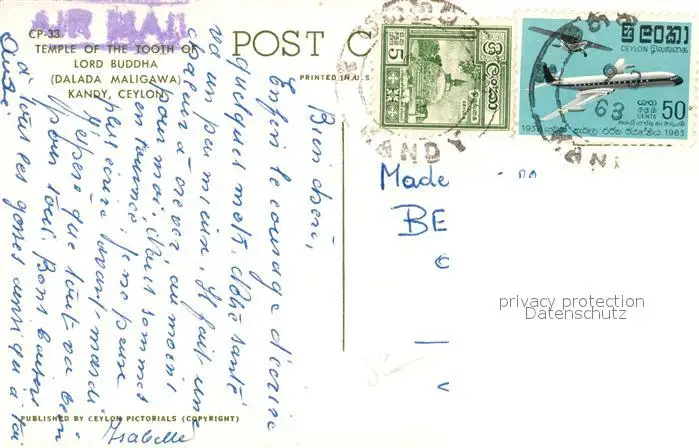 AIR MAIL
CP-33
TEMPLE OF THE TOOTH OF
LORD BUDDHA
(DALADA MALIGAWA)
KANDY, CEYLON
POST C
PRINTED IN U.S
Bien chère,
Enfin le courage d'écrire
quelques mots. Notre santé
va un peu mieux. Il fait une
chaleur à crever, au moins
pour moi. Nous sommes
en tournée, je ne peux
plus écrire avant mardi.
J'espère que tout va bien
pour tous. Bons baisers
à tous les gosses ainsi qu'à toi
Isabelle
Made
BE
PUBLISHED BY CEYLON PICTORIALS (COPYRIGHT)
5
CEYLON
ශ්‍රී ලංකා
CEYLON
50
CENTS
1938
1963
63
KANDY
privacy protection
Datenschutz